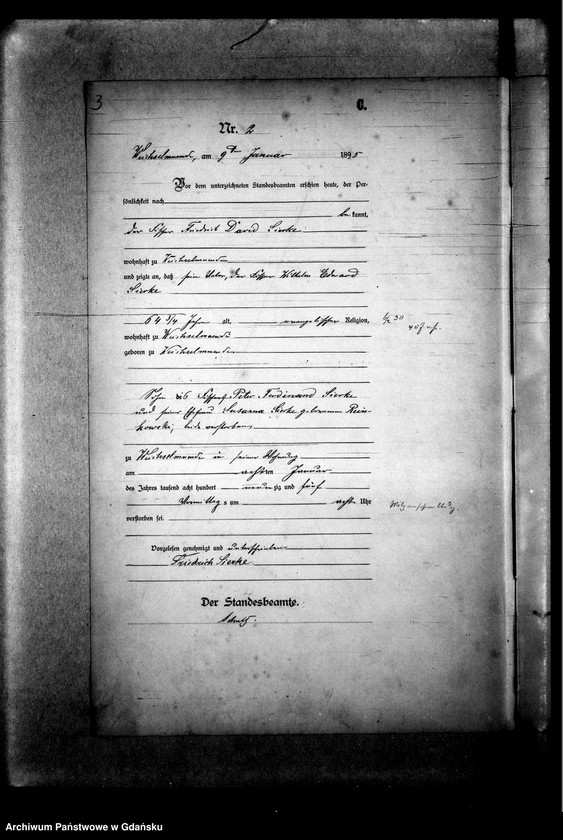 3
C.
Nr. 2
Weichselmünde, am 9ten Januar 1895
Vor dem unterzeichneten Standesbeamten erschien heute, der Per-
sönlichkeit nach
be kannt,
der Fischer Friedrich David Sierke
wohnhaft zu Weichselmünde
und zeigte an, daß sein Vater, der Fischer Wilhelm Eduard
Sierke
64 3/4 Jahre alt, evangelischer Religion,
wohnhaft zu Weichselmünde
geboren zu Weichselmünde
Sohn des Peter Ferdinand Sierke
und seiner Ehefrau Susanna Sierke geborenen Rein-
kowski, beide verstorben
zu Weichselmünde in seiner Wohnung
am achten Januar
des Jahres tausend acht hundert neun zig und fünf
Vormittag s um acht Uhr
verstorben sei.
Vorgelesen, genehmigt und unterschrieben
Friedrich Sierke
Der Standesbeamte.
Archiwum Państwowe w Gdańsku